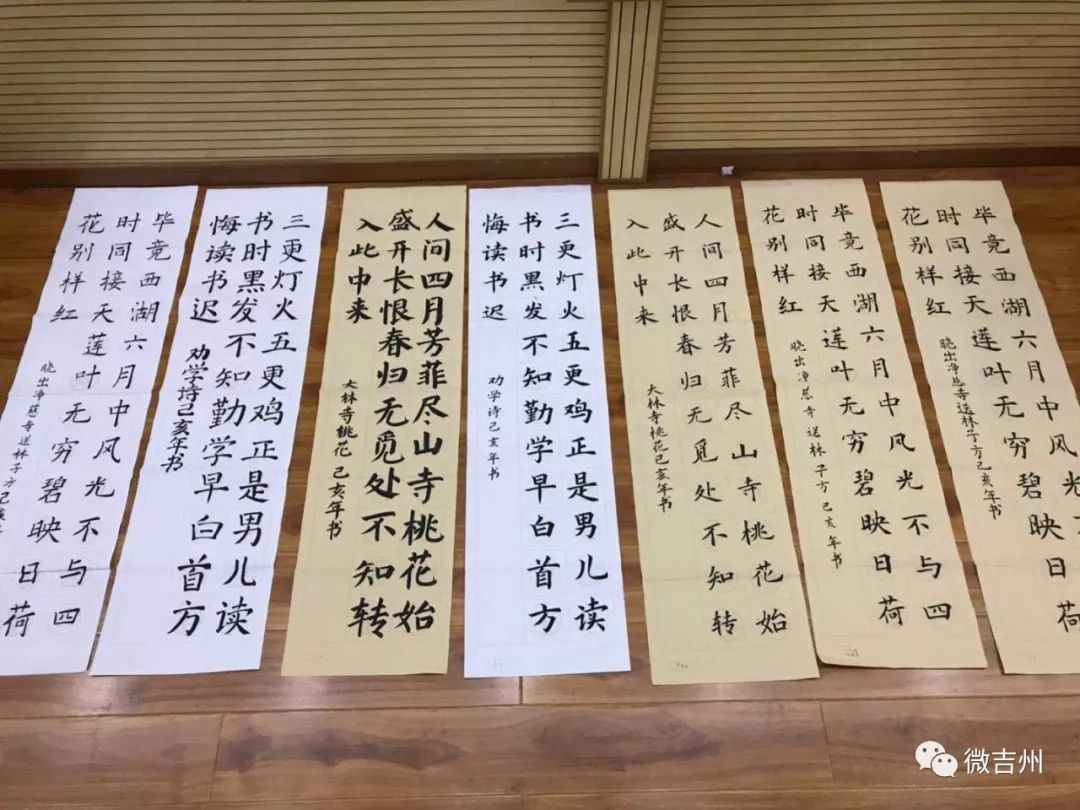 毕竟西湖六月中风光不与四
时同接天莲叶无穷碧映日荷
花别样红
晓出净慈寺送林子方己亥
三更灯火五更鸡正是男儿读
书时黑发不知勤学早白首方
悔读书迟
劝学诗己亥年书
人间四月芳菲尽山寺桃花始
盛开长恨春归无觅处不知转
入此中来
大林寺桃花 己亥年书
三更灯火五更鸡正是男儿读
书时黑发不知勤学早白首方
悔读书迟
劝学诗己亥年书
人间四月芳菲尽山寺桃花始
盛开长恨春归无觅处不知转
入此中来
大林寺桃花己亥年书
毕竟西湖六月中风光不与四
时同接天莲叶无穷碧映日荷
花别样红
晓出净慈寺送林子方己亥年书
毕竟西湖六月中风光
时同接天莲叶无穷碧映日荷
花别样红
晓出净慈寺送林子方己亥年书
微吉州